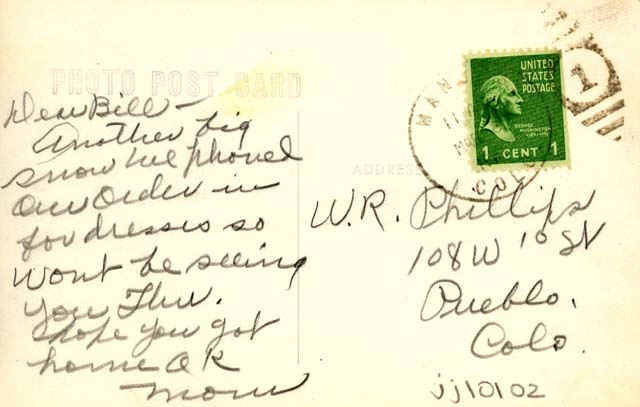 PHOTO POST CARD
Dear Bill —
Another big
snow we phoned
our order in
for dresses so
wont be seeing
you Thur.
hope you got
home OK
Mom
UNITED
STATES
POSTAGE
GEORGE
WASHINGTON
1 CENT 1
MAN
11
COLO
1
ADDRESS
W.R. Phillips
108 W 10 St
Pueblo,
Colo.
jj10102